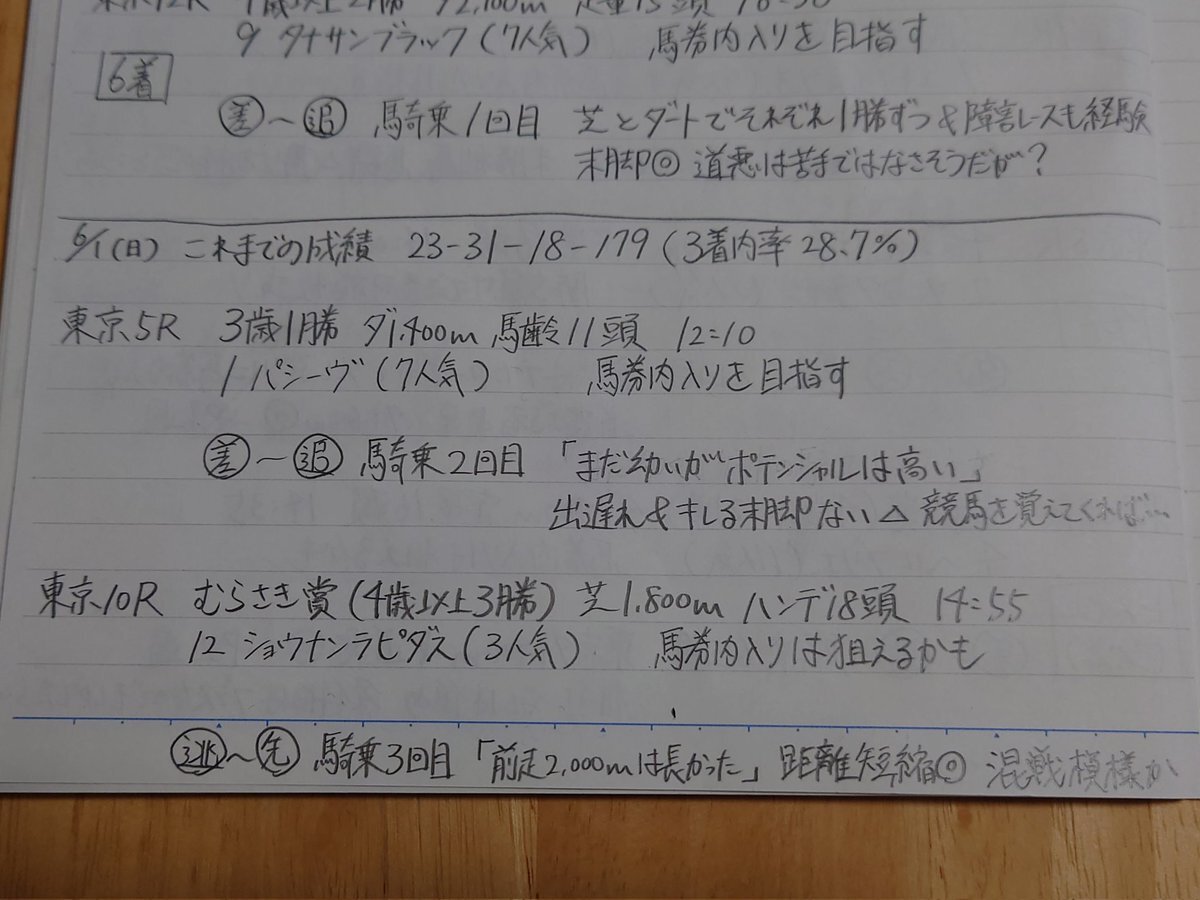 東京12R 4歳以上2勝 ダ2,100m 定量15頭 16:30
9 タナサンブラック(7人気) 馬券内入りを目指す
6着
差~追 騎乗1回目 芝とダートでそれぞれ1勝ずつ&障害レースも経験
末脚◎ 道悪は苦手ではなさそうだが?
6/1(日) これまでの成績 23-31-18-179(3着内率28.7%)
東京5R 3歳1勝 ダ1,400m 馬齢11頭 12:10
1 パシーヴ(7人気) 馬券内入りを目指す
差~追 騎乗2回目 「まだ幼いがポテンシャルは高い」
出遅れ&キレる末脚ない△ 競馬を覚えてくれば…
東京10R むらさき賞(4歳以上3勝) 芝1,800m ハンデ18頭 14:55
12 ショウナンラピダス(3人気) 馬券内入りは狙えるかも
逃~先 騎乗3回目 「前走2,000mは長かった」 距離短縮◎ 混戦模様か